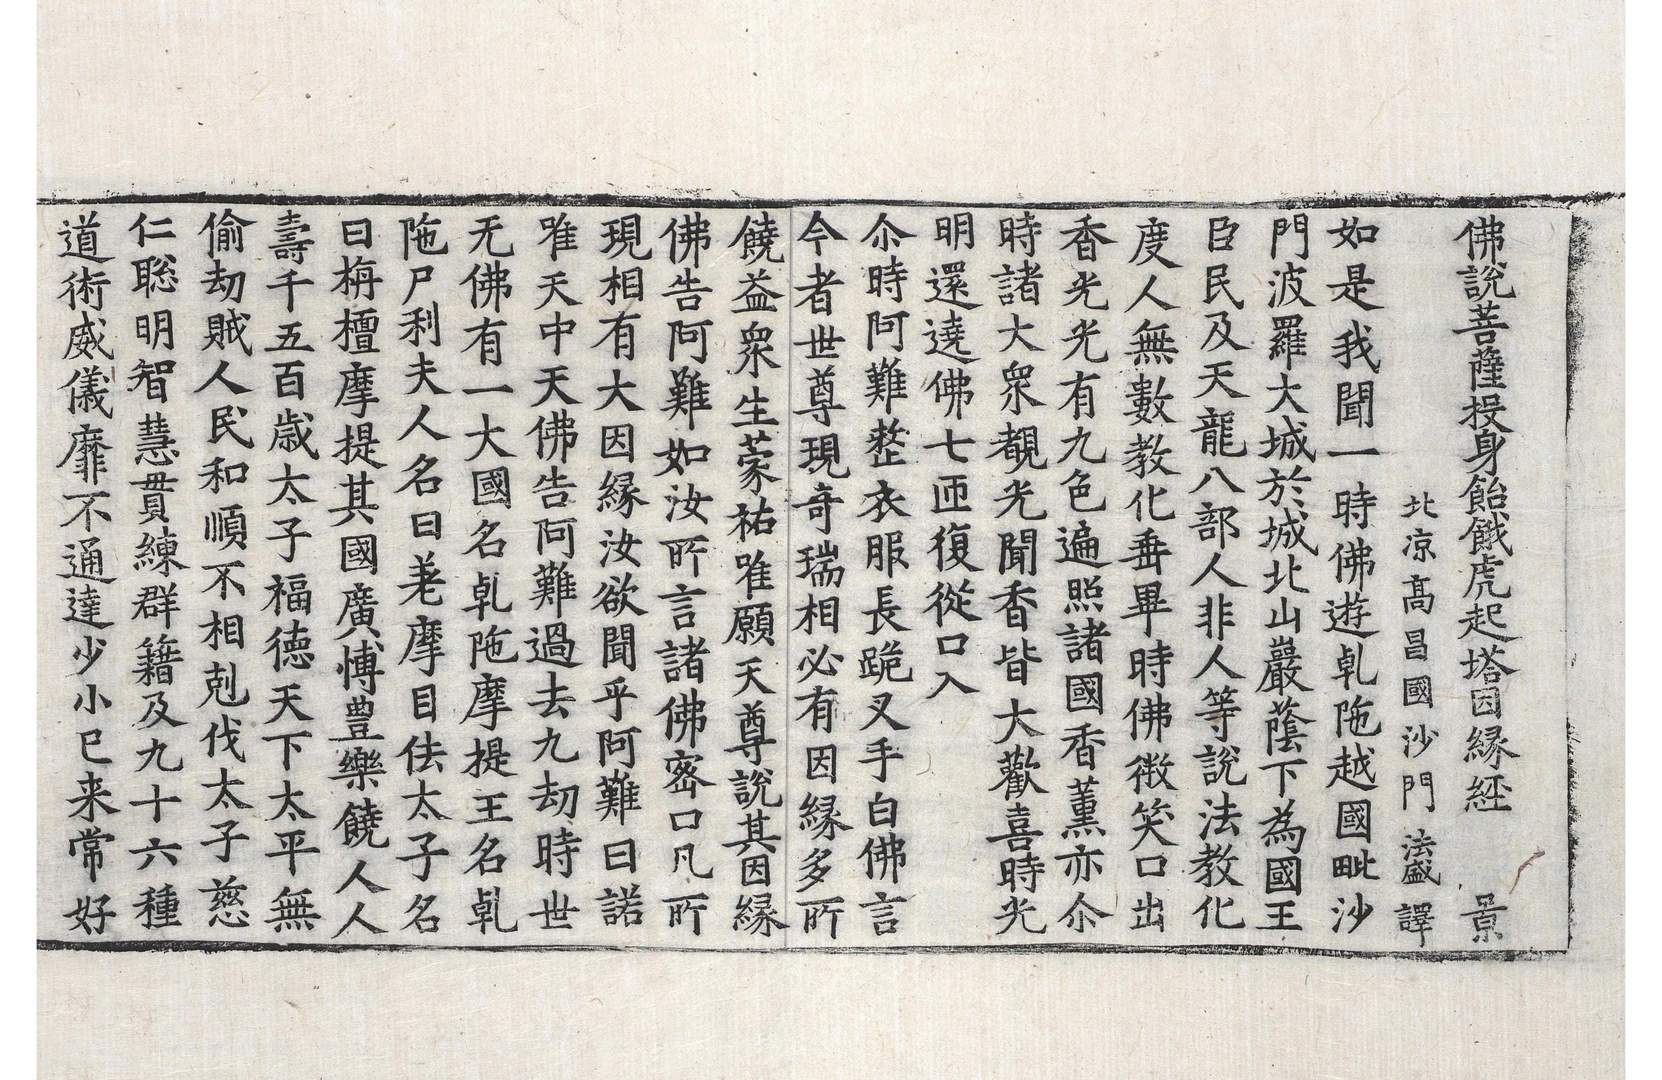 佛說菩薩投身飴餓虎起塔因縁経　景
北凉髙昌國沙門法盛譯
如是我聞一時佛遊乹陁越國毗沙
門波羅大城於城北山巖蔭下為國王
臣民及天龍八部人非人等說法教化
度人無數教化垂畢時佛微笑口出
香光光有九色遍照諸國香薰亦尒
時諸大衆覩光聞香皆大歡喜時光
明還遶佛七匝復從口入
尒時阿難整衣服長跪叉手白佛言
今者世尊現奇瑞相必有因縁多所
饒益衆生蒙祐唯願天尊說其因縁
佛告阿難如汝所言諸佛密口凡所
現相有大因縁汝欲聞乎阿難曰諾
唯天中天佛告阿難過去九劫時世
无佛有一大國名乹陁摩提王名乹
陁尸利夫人名曰差摩目佉太子名
曰栴檀摩提其國廣博豊樂饒人人
壽千五百歳太子福德天下太平無
偷劫賊人民和順不相剋伐太子慈
仁聡明智慧貫練群籍及九十六種
道術威儀靡不通達少小已来常好